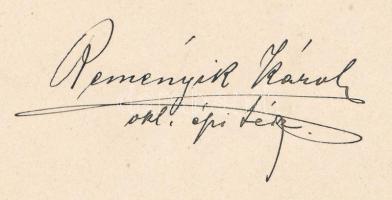 Reményik Károly
okl. építész.